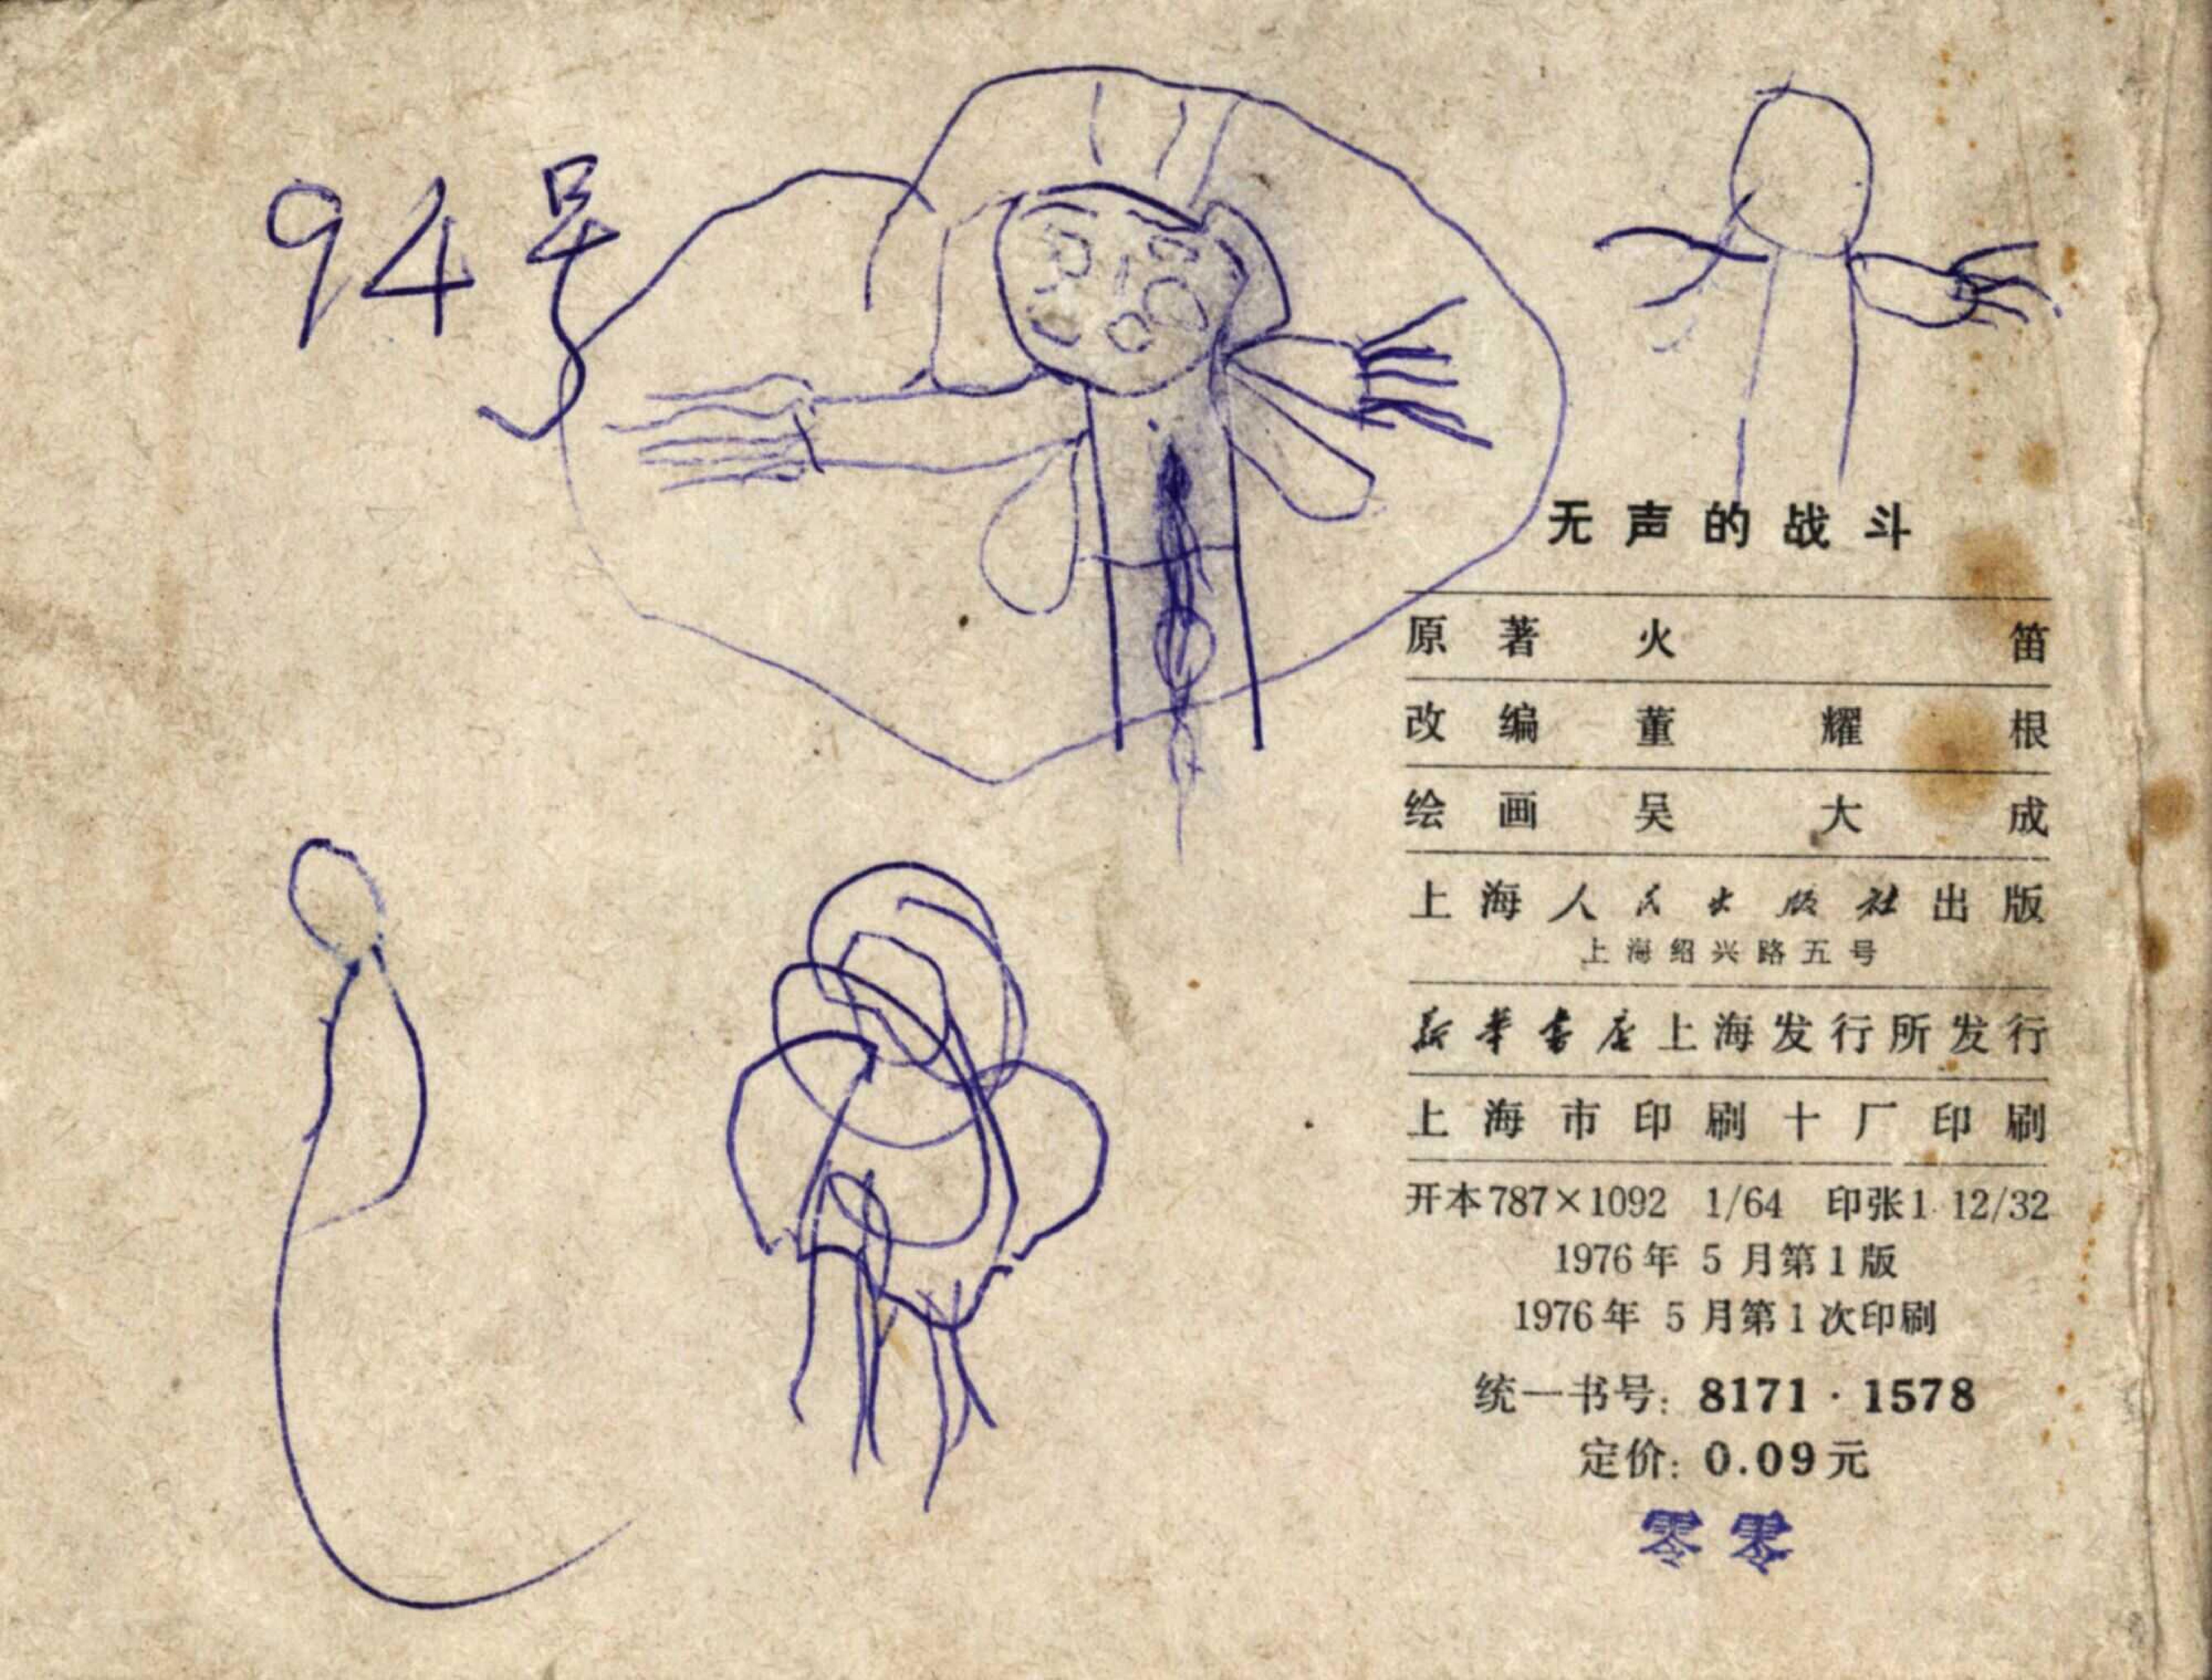 94号
无声的战斗
原著 火笛
改编 董耀根
绘画 吴大成
上海人民出版社出版
上海绍兴路五号
新华书店上海发行所发行
上海市印刷十厂印刷
开本787×1092 1/64 印张1 12/32
1976年5月第1版
1976年5月第1次印刷
统一书号：8171·1578
定价：0.09元
零零